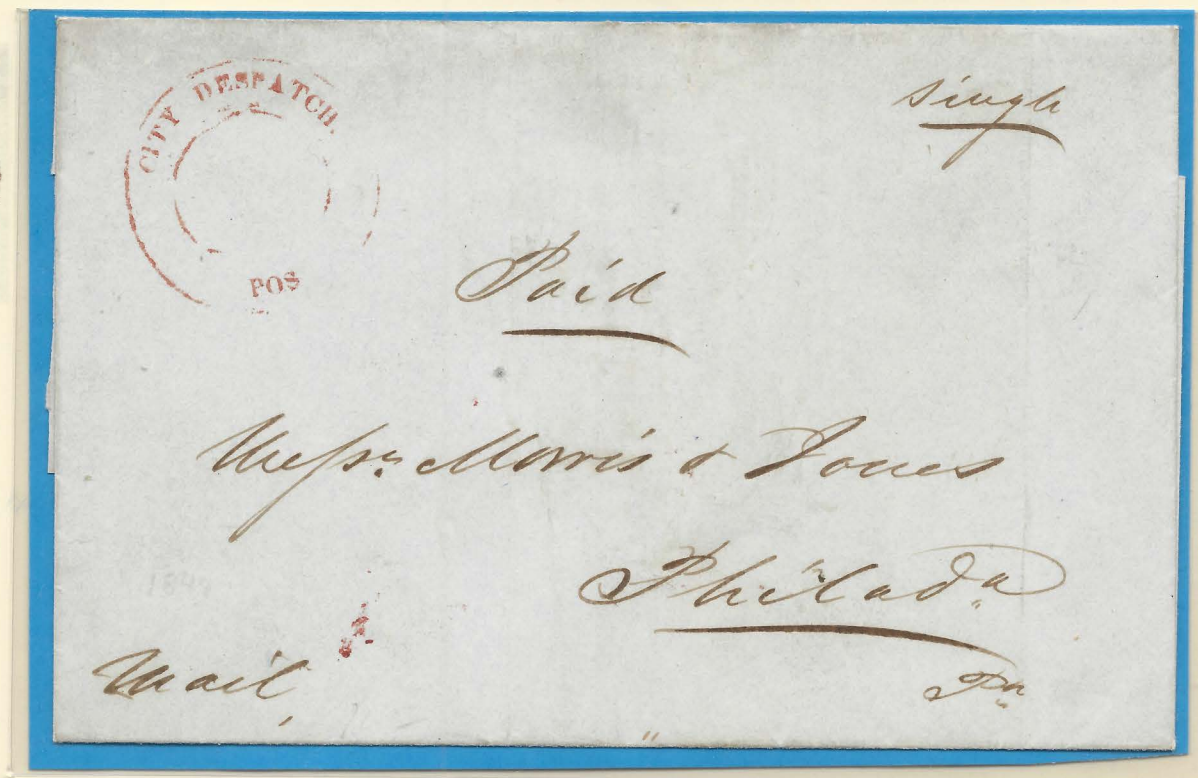 CITY DESPATCH.
POS
single
Paid
Messrs Morris & Jones
Philada
Pa
Mail